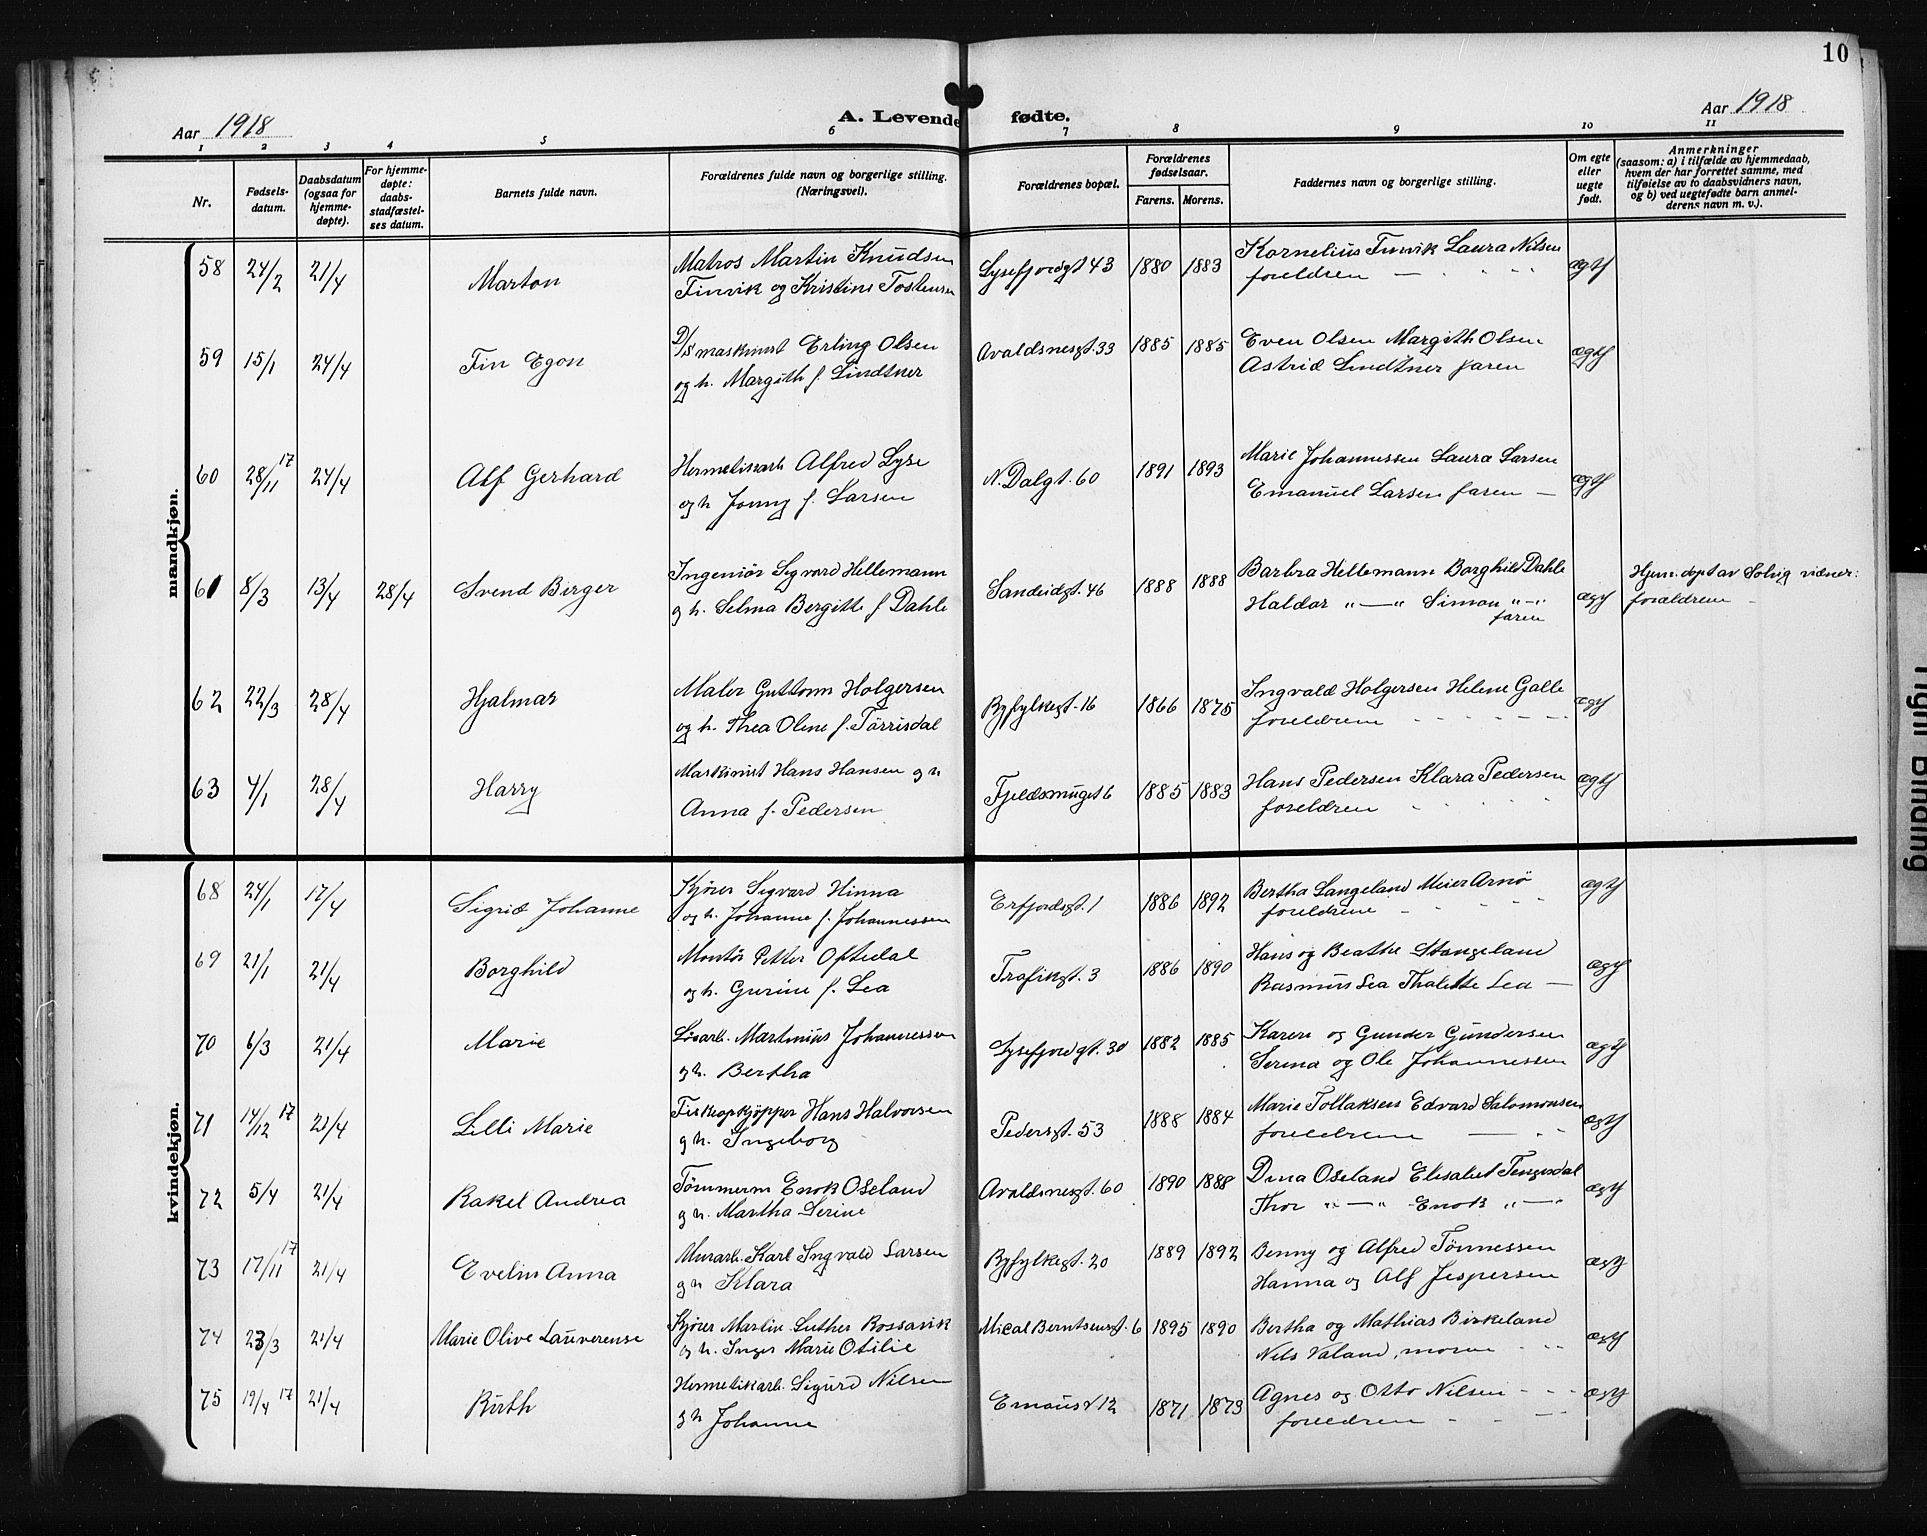 10
Aar 1918
A. Levende fødte.
Aar 1918
1 2 3 4 5 6 7 8 9 10 11
Nr.
Fødsels-
datum.
Daabsdatum
(ogsaa for
hjemme-
døpte).
For hjemme-
døpte:
daabs-
stadfæstel-
ses datum.
Barnets fulde navn.
Forældrenes fulde navn og borgerlige stilling.
(Næringsvei).
Forældrenes bopæl.
Forældrenes
fødselsaar.
Farens. Morens.
Faddernes navn og borgerlige stilling.
Om egte
eller
uegte
født.
Anmerkninger
(saasom: a) i tilfælde av hjemmedaab,
hvem der har forrettet samme, med
tilføielse av to daabsvidners navn,
og b) ved uegtefødte barn anmel-
derens navn m. v.).
mandkjøn.
58 24/2 21/4 Marton Matros Martin Knudsen Lysefjordgt 43 1880 1883 Kornelius Finvik Laura Nilsen ægte
Finvik og Kristine Tostensen foreldren — " " "
59 15/1 24/4 Fin Egon D/s maskinist Erling Olsen Avaldsnesgt. 33 1885 1885 Even Olsen Margith Olsen ægte
og h. Margith f. Lindtner Astrid Lindtner faren
60 28/11 17 24/4 Alf Gerhard Hermetikarb Alfred Lyse N. Dalgt. 60 1891 1893 Marie Johannessen Laura Larsen ægte
og h Jonny f. Larsen Emanuel Larsen faren —
61 8/3 13/4 28/4 Svend Birger Ingeniør Sigvard Hellemann Sandeidgt. 46 1888 1888 Barbra Hellemann Borghild Dahle ægte Hjem. døpt av Solvig vidner:
g h. Selma Bergitte f Dahle Haldor " — " Simon " — " forældrene —
faren
62 22/3 28/4 Hjalmar Maler Guttorm Holgersen Ryfylkegt. 16 1866 1875 Ingvald Holgersen Helene Galle ægte
og h. Thea Oline f. Tørrisdal foreldrene - - - - -
63 4/1 28/4 Harry Maskinist Hans Hansen g h Fjeldsmuget 6 1885 1883 Hans Pedersen Klara Pedersen ægte
Anna f. Pedersen foreldren " " " "
kvindekjøn.
68 24/1 17/4 Sigrid Johanne Kjører Sigvard Hinna Erfjordsgt. 1 1886 1892 Bertha Langeland Meier Arnø ægte
og h. Johanne f. Johannessen foreldrene - " " " "
69 21/1 21/4 Borghild Montør Petter Oftedal Trafikgt. 3 1886 1890 Hans og Beathe Stangeland ægte
og h. Gurine f. Lea Rasmus Lea Thalette Lea —
70 6/3 21/4 Marie Løsarb. Martinius Johannessen Lysefjordgt. 30 1882 1885 Karen og Gunder Gundersen ægte
g h. Bertha Serina og Ole Johannessen
71 14/12 17 21/4 Lilli Marie Fiskeopkjøpper Hans Halvorsen Pedersgt. 53 1888 1884 Marie Tollaksen Edvard Salomonsen ægte
g h. Ingeborg foreldrene — " "
72 5/4 21/4 Rakel Andrea Tømmerm Enok Oseland Avaldsnesgt. 60 1890 1888 Dina Oseland Elisabet Tengesdal ægte
g h. Martha Serine Thor " — " Enok " — "
73 17/11 17 21/4 Evelin Anna Murarb. Karl Ingvald Larsen Ryfylkegt. 20 1889 1892 Benny og Alfred Tønnessen ægte
g h Klara Hanna og Alf Jespersen
74 23/3 21/4 Marie Olive Lauverense Kjører Martin Luther Rossavik Mical Berntsensgt. 6 1895 1890 Bertha og Mathias Birkeland ægte
og h. Inger Marie Otilie Nils Valand, moren " "
75 19/4 17 21/4 Ruth Hermetikarb. Sigurd Nilsen Emaus v 12 1871 1873 Agnes og Otto Nilsen - " " ægte
g h Johanne foreldren - - — "